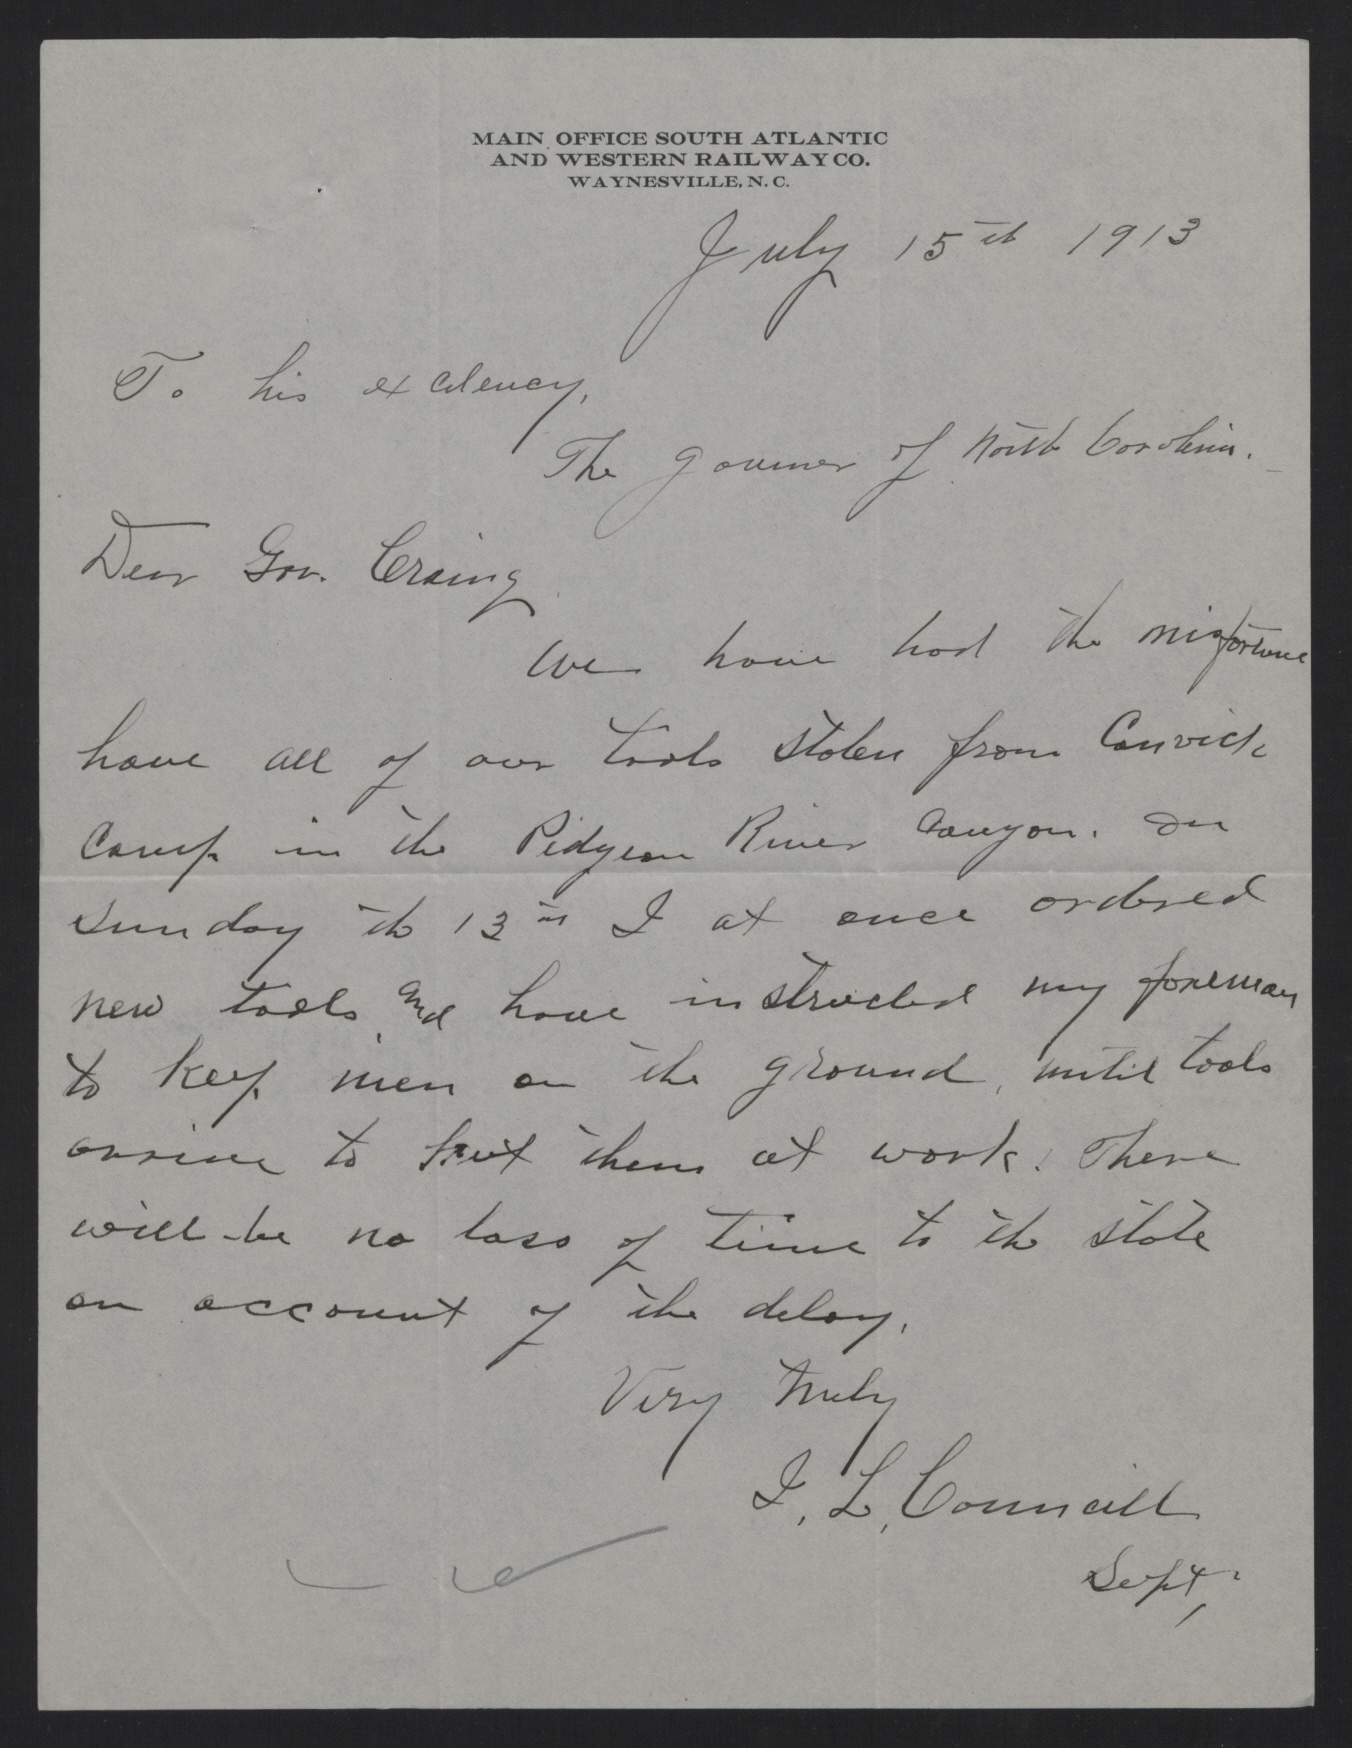 MAIN OFFICE SOUTH ATLANTIC
AND WESTERN RAILWAY CO.
WAYNESVILLE, N. C.
July 15th 1913
To his excelency,
The governer of North Carolina.
Dear Gov. Craing
We have had the misfortune
have all of our tools stolen from Convick
Camp in the Pidgeon River Canyon. On
Sunday th 13th I at once ordered
new tools, and have instructed my foreman
to keep men on the ground, until tools
arrive to put them at work. There
will be no loss of time to the state
on account of the delay.
Very truly
I. L. Councill
Supt,